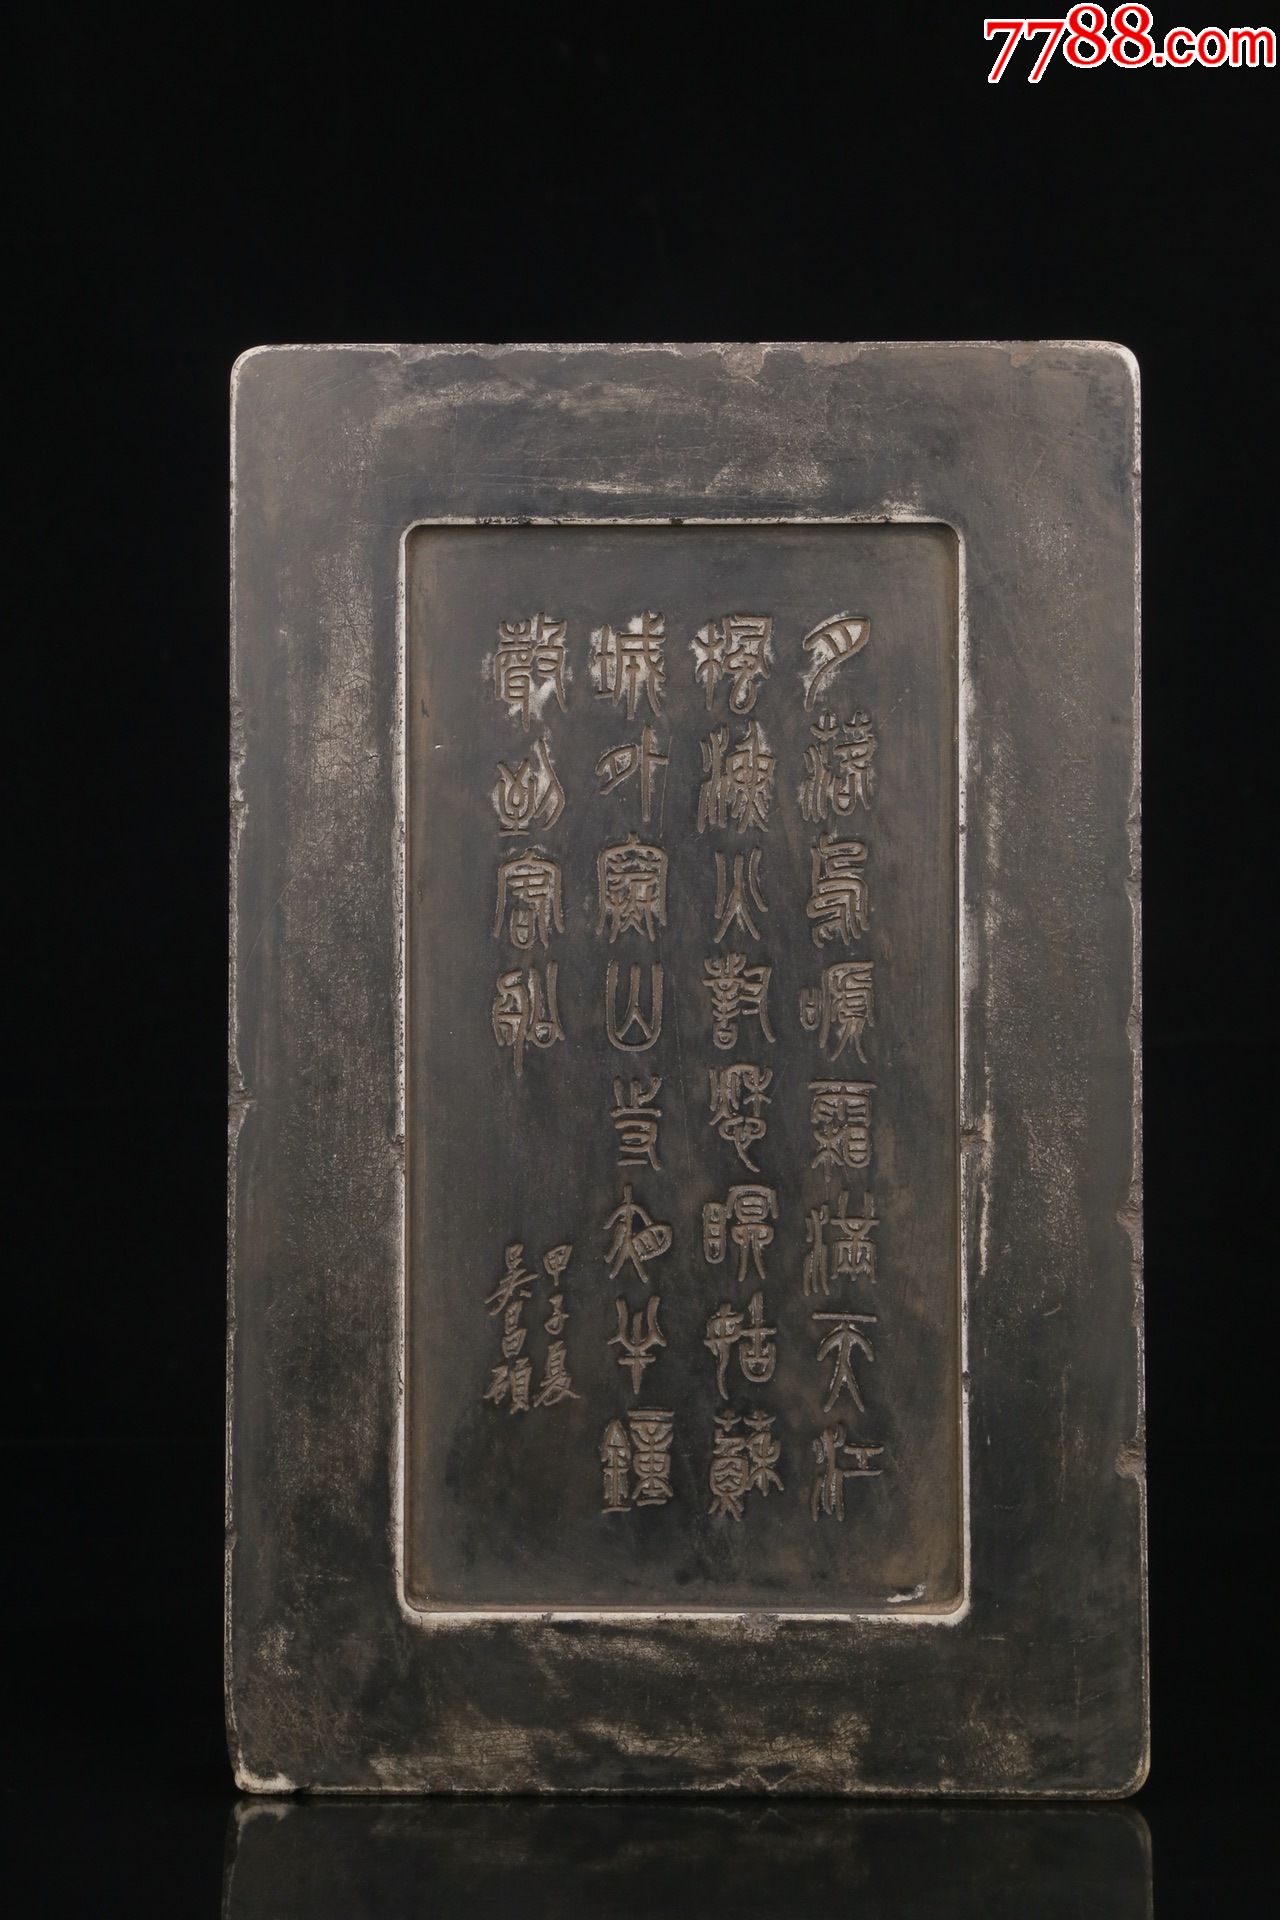 7788.com
月落烏嗁霜滿天江
楓漁火對愁瞑姑蘇
城外寒山寺夜半鐘
聲到客船
甲子夏
吳昌碩